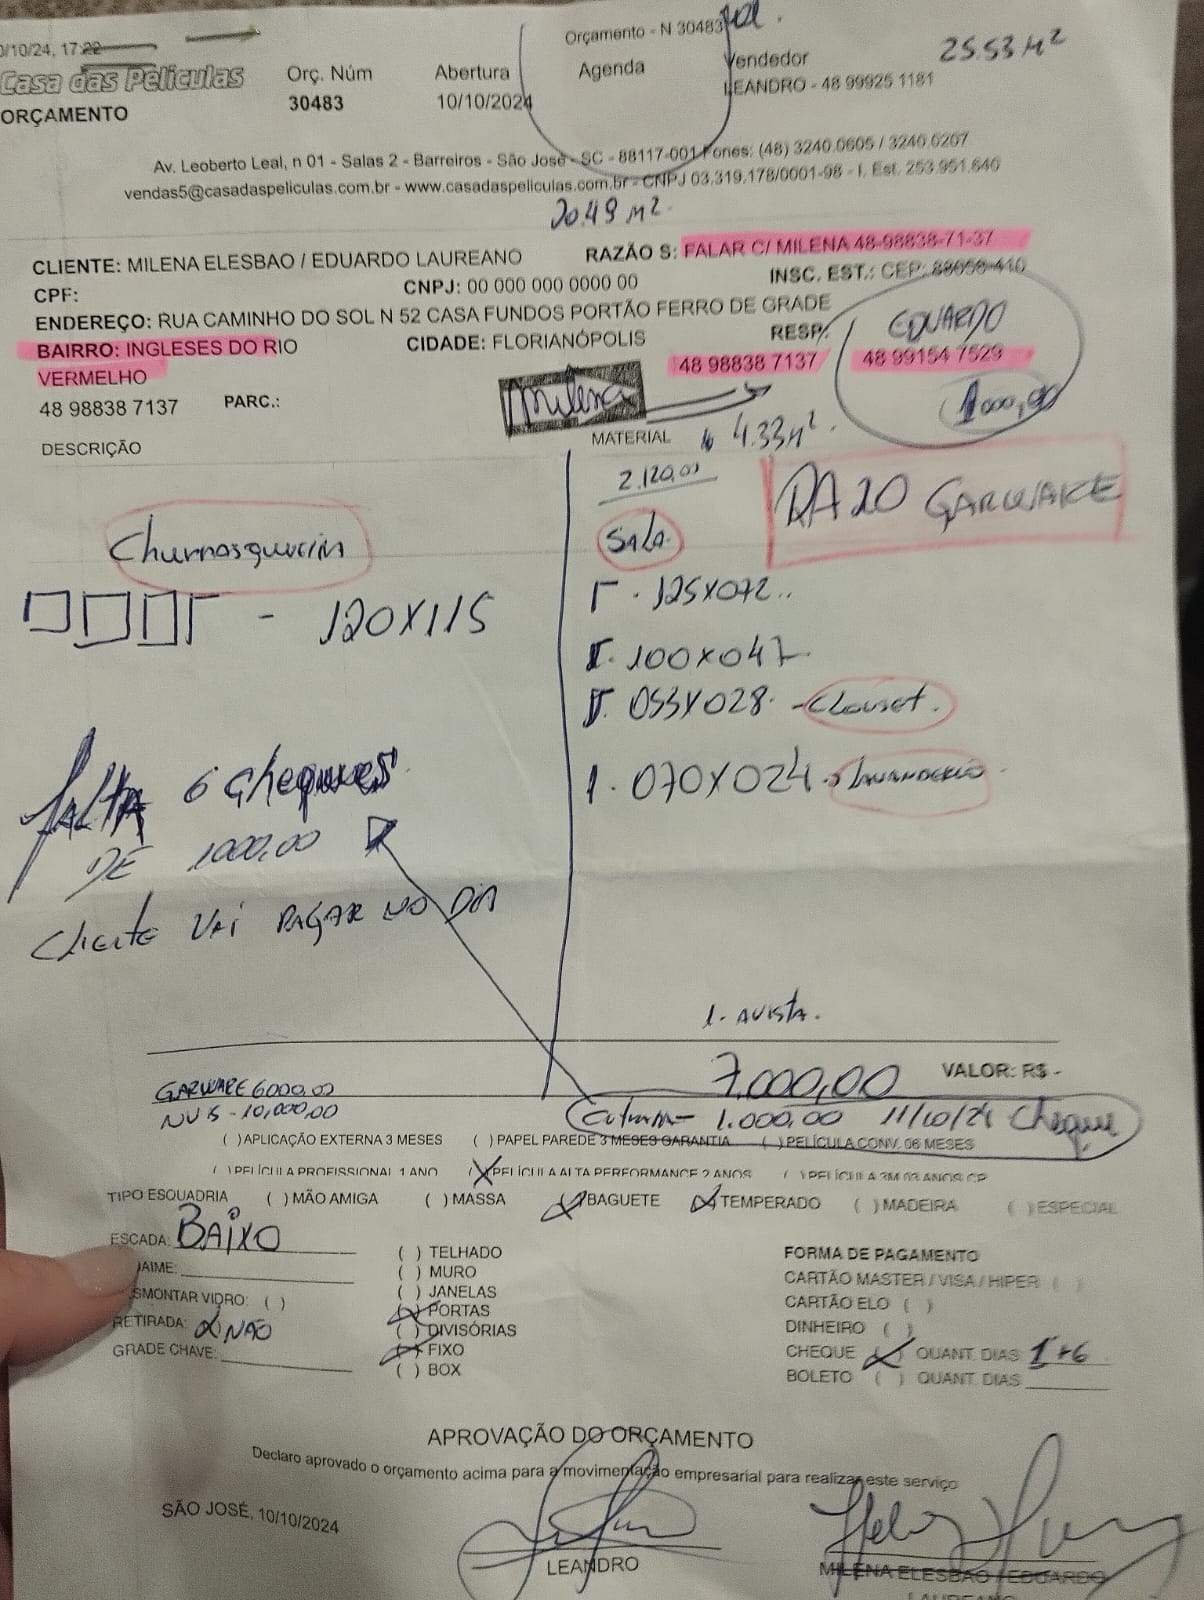 0/10/24, 17:22
Orçamento - N 30483
25.53 M²
Casa das Películas
ORÇAMENTO
Orç. Núm
30483
Abertura
10/10/2024
Agenda
Vendedor
LEANDRO - 48 99925 1181
Av. Leoberto Leal, n 01 - Salas 2 - Barreiros - São José - SC - 88117-001 Fones: (48) 3240.0605 / 3240.0207
vendas5@casadaspeliculas.com.br - www.casadaspeliculas.com.br - CNPJ 03.319.178/0001-98 - I. Est. 253.951.640
20.49 M²
CLIENTE: MILENA ELESBAO / EDUARDO LAUREANO
RAZÃO S: FALAR C/ MILENA 48-98838-71-37
CPF:
CNPJ: 00 000 000 0000 00
INSC. EST.: CEP: 88058-410
ENDEREÇO: RUA CAMINHO DO SOL N 52 CASA FUNDOS PORTÃO FERRO DE GRADE
BAIRRO: INGLESES DO RIO VERMELHO
CIDADE: FLORIANÓPOLIS
RESP:
EDUARDO
48 98838 7137
48 99154 7529
1000,00
48 98838 7137
PARC.:
Milena
DESCRIÇÃO
MATERIAL
4.33 M².
2.120,00
RA20 GARWARE
Churrasqueira
Sala
- 120X115
125X072
100X047
053X028 - Clouset.
1. 070X024 Lavanderia
FALTA 6 Cheques
DE 1000,00
Cliente VAI PAGAR NO DIA
1. AVISTA.
7.000,00
VALOR: R$ -
GARWARE 6000,00
NV 15 - 10,000,00
Entrada - 1.000,00 11/10/24 Cheque
( ) APLICAÇÃO EXTERNA 3 MESES ( ) PAPEL PAREDE 3 MESES GARANTIA ( ) PELÍCULA CONV. 06 MESES
( ) PELÍCULA PROFISSIONAL 1 ANO (X) PELÍCULA ALTA PERFORMANCE 2 ANOS ( ) PELÍCULA 3M 03 ANOS CP
TIPO ESQUADRIA ( ) MÃO AMIGA ( ) MASSA (X) BAGUETE (X) TEMPERADO ( ) MADEIRA ( ) ESPECIAL
ESCADA: BAIXO
AIME:
SMONTAR VIDRO: ( )
RETIRADA: NÃO
GRADE CHAVE:
( ) TELHADO
( ) MURO
( ) JANELAS
(X) PORTAS
( ) DIVISÓRIAS
(X) FIXO
( ) BOX
FORMA DE PAGAMENTO
CARTÃO MASTER / VISA / HIPER ( )
CARTÃO ELO ( )
DINHEIRO ( )
CHEQUE (X) QUANT. DIAS 1+6
BOLETO ( ) QUANT. DIAS
APROVAÇÃO DO ORÇAMENTO
Declaro aprovado o orçamento acima para a movimentação empresarial para realizar este serviço
SÃO JOSÉ, 10/10/2024
LEANDRO
MILENA ELESBAO / EDUARDO
LAUREANO